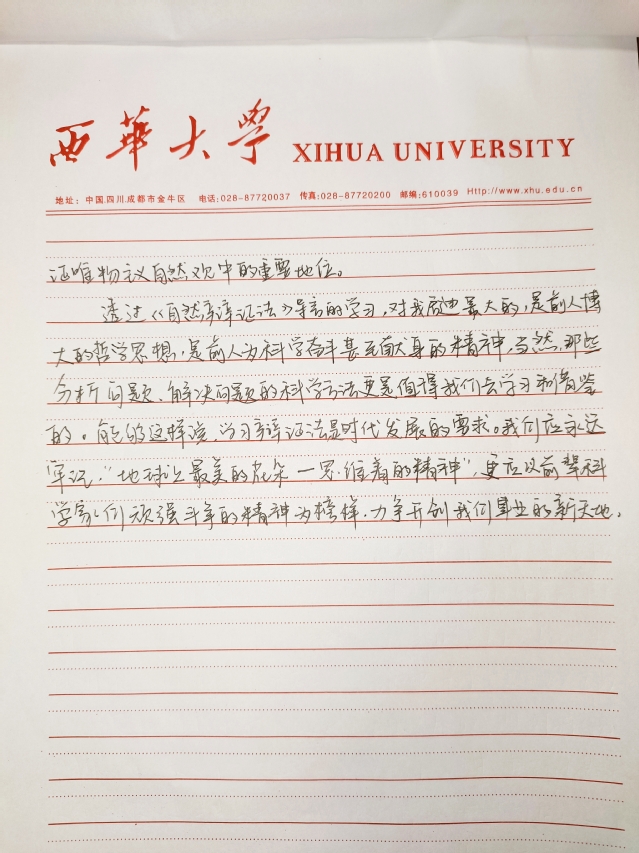 西華大學 XIHUA UNIVERSITY
地址：中国.四川.成都市金牛区 电话:028-87720037 传真:028-87720200 邮编:610039 Http://www.xhu.edu.cn
证唯物议自然观中的重要地位。
透过《自然辩证法》导言的学习，对我启迪最大的，是前人博
大的哲学思想，是前人为科学奋斗甚至献身的精神，当然，那些
分析问题、解决问题的科学方法更是值得我们去学习和借鉴
的。能够这样说，学习辩证法是时代发展的需求。我们应永远
牢记：“地球上最美的花朵—思维着的精神”，更应以前辈科
学家们顽强斗争的精神为榜样，力争开创我们事业的新天地。